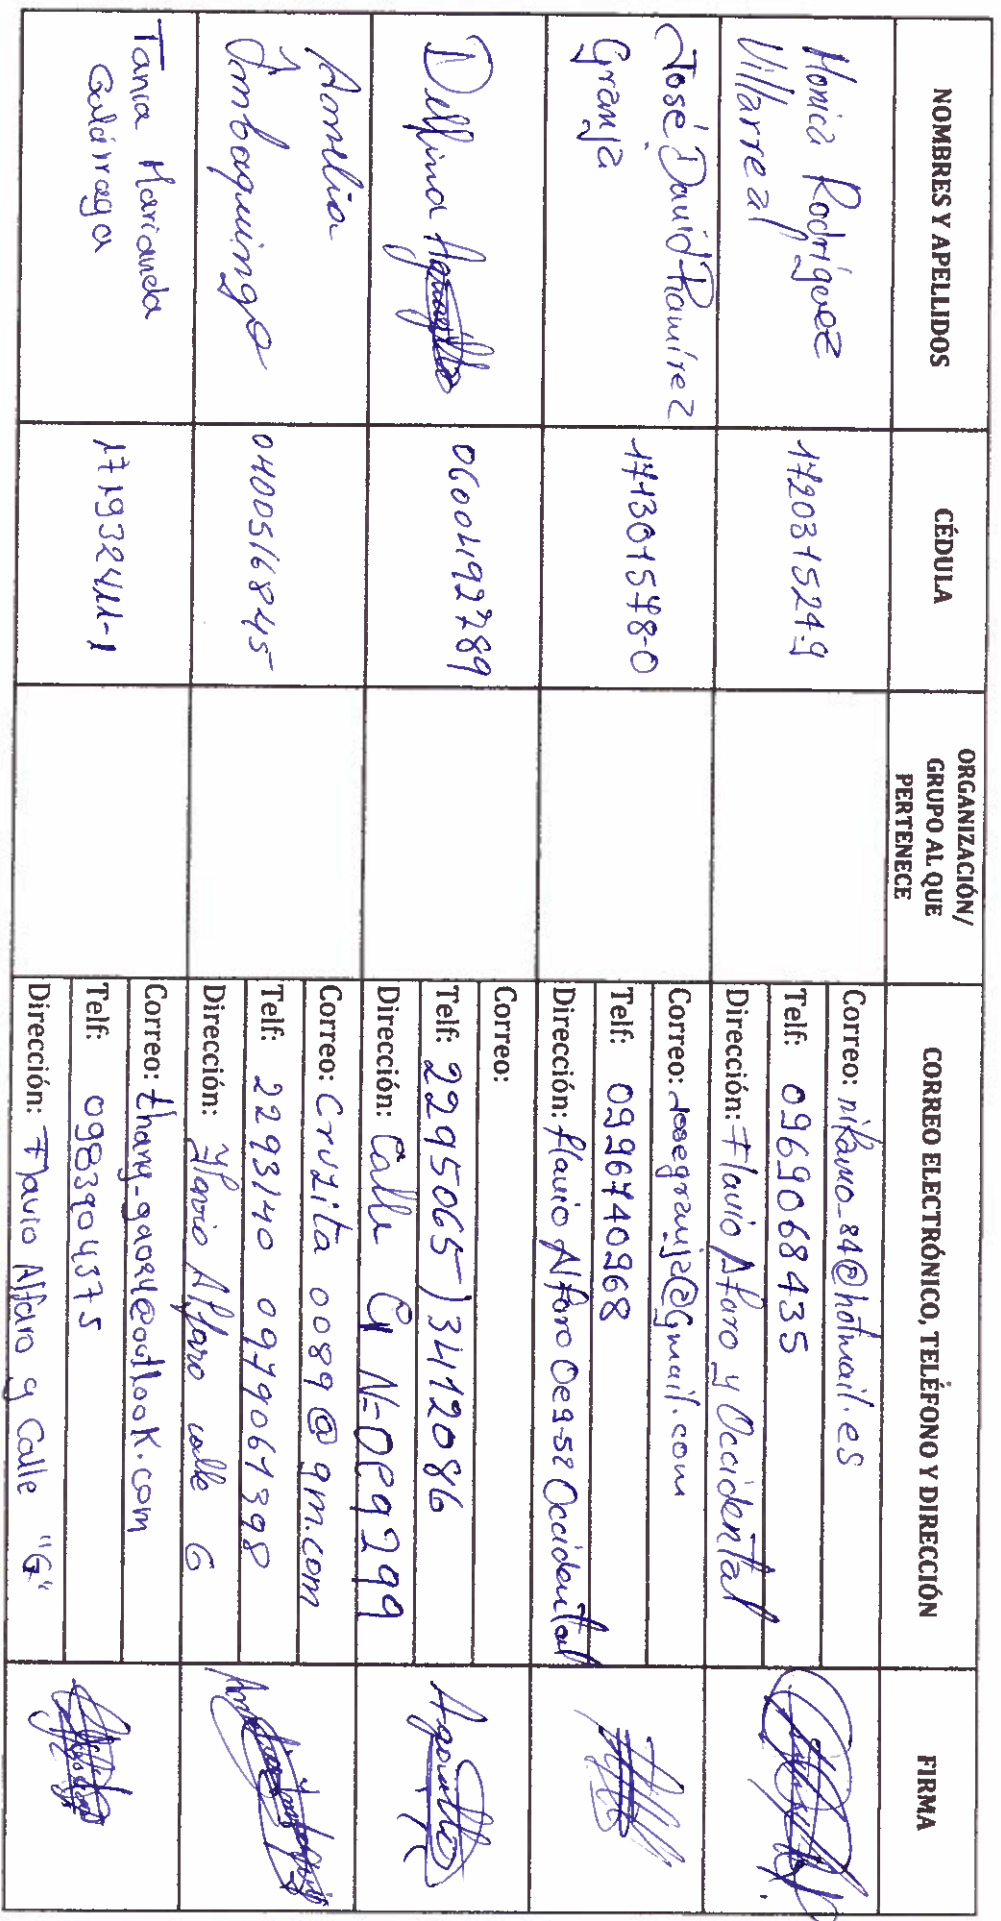 NOMBRES Y APELLIDOS
CÉDULA
ORGANIZACIÓN/
GRUPO AL QUE
PERTENECE
CORREO ELECTRÓNICO, TELÉFONO Y DIRECCIÓN
FIRMA
Monica Rodríguez
Villarreal
172031524-9
Correo: nikavo_84@hotmail.es
Telf: 0969068435
Dirección: Flavio Alfaro y Occidental
José David Ramírez
Granja
171301578-0
Correo: josegranja@Gmail.com
Telf: 0996740968
Dirección: flavio Alfaro Oe9-52 Occidental
Delfina
0600492789
Correo:
Telf: 2295065 ) 3412086
Dirección: Calle G N=Oe9299
Amelia
Imbaquingo
0400516845
Correo: Cruzita 0089@gm.com
Telf: 2293140 0979061398
Dirección: Flavio Alfaro calle G
Tania Marianela
Galárraga
171932411-1
Correo: thany_gao84@outlook.com
Telf: 0983904375
Dirección: Flavio Alfaro y Calle "G"